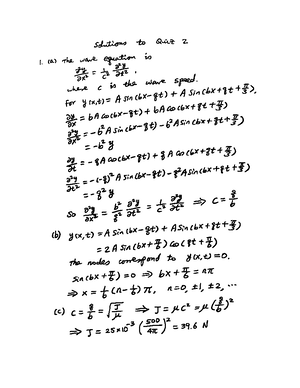 Solutions to Quiz 2
1. (a) The wave equation is
∂²y/∂x² = 1/c² ∂²y/∂t²,
where c is the wave speed.
For y(x,t) = A sin(bx-gt) + A sin(bx+gt+π/3),
∂y/∂x = bA cos(bx-gt) + bA cos(bx+gt+π/3)
∂²y/∂x² = -b²A sin(bx-gt) - b²A sin(bx+gt+π/3)
= -b²y
∂y/∂t = -gA cos(bx-gt) + gA cos(bx+gt+π/3)
∂²y/∂t² = -(-g)²A sin(bx-gt) - g²A sin(bx+gt+π/3)
= -g²y
So ∂²y/∂x² = b²/g² ∂²y/∂t² = 1/c² ∂²y/∂t² ⇒ c = g/b
(b) y(x,t) = A sin(bx-gt) + A sin(bx+gt+π/3)
= 2A sin(bx+π/6) cos(gt+π/6)
The nodes correspond to y(x,t)=0.
sin(bx+π/6)=0 ⇒ bx+π/6 = nπ
⇒ x = 1/b (n-1/6)π, n=0, ±1, ±2, ...
(c) c = g/b = √(J/μ) ⇒ J = μc² = μ(g/b)²
⇒ J = 25×10⁻³ (500/4π)² = 39.6 N